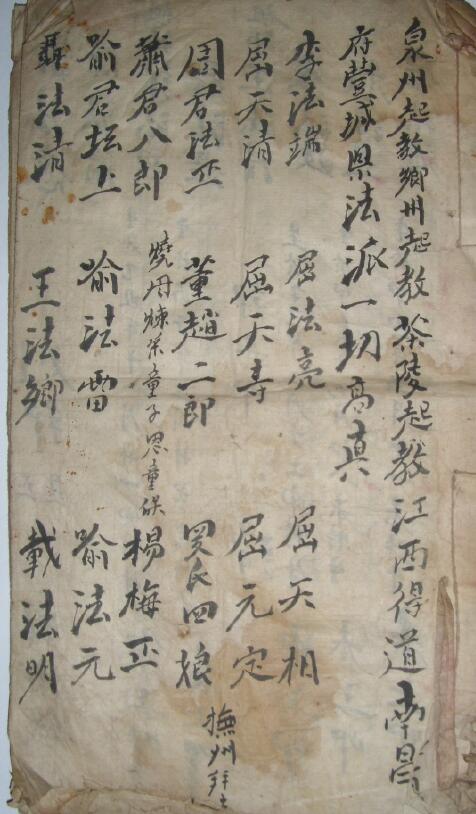 泉州起教鄉州起教茶陵起教江西得道南昌
府豐城県法派一切高真
李法端 屈法亮 屈天相
屈天清 屈天壽 屈元定
周君法 董趙二郎 四娘
撫州
蕭君八郎 燒丹煉 童子 童 楊梅
喻君坛上 喻法雷 喻法元
聶法清 王法鄉 載法明